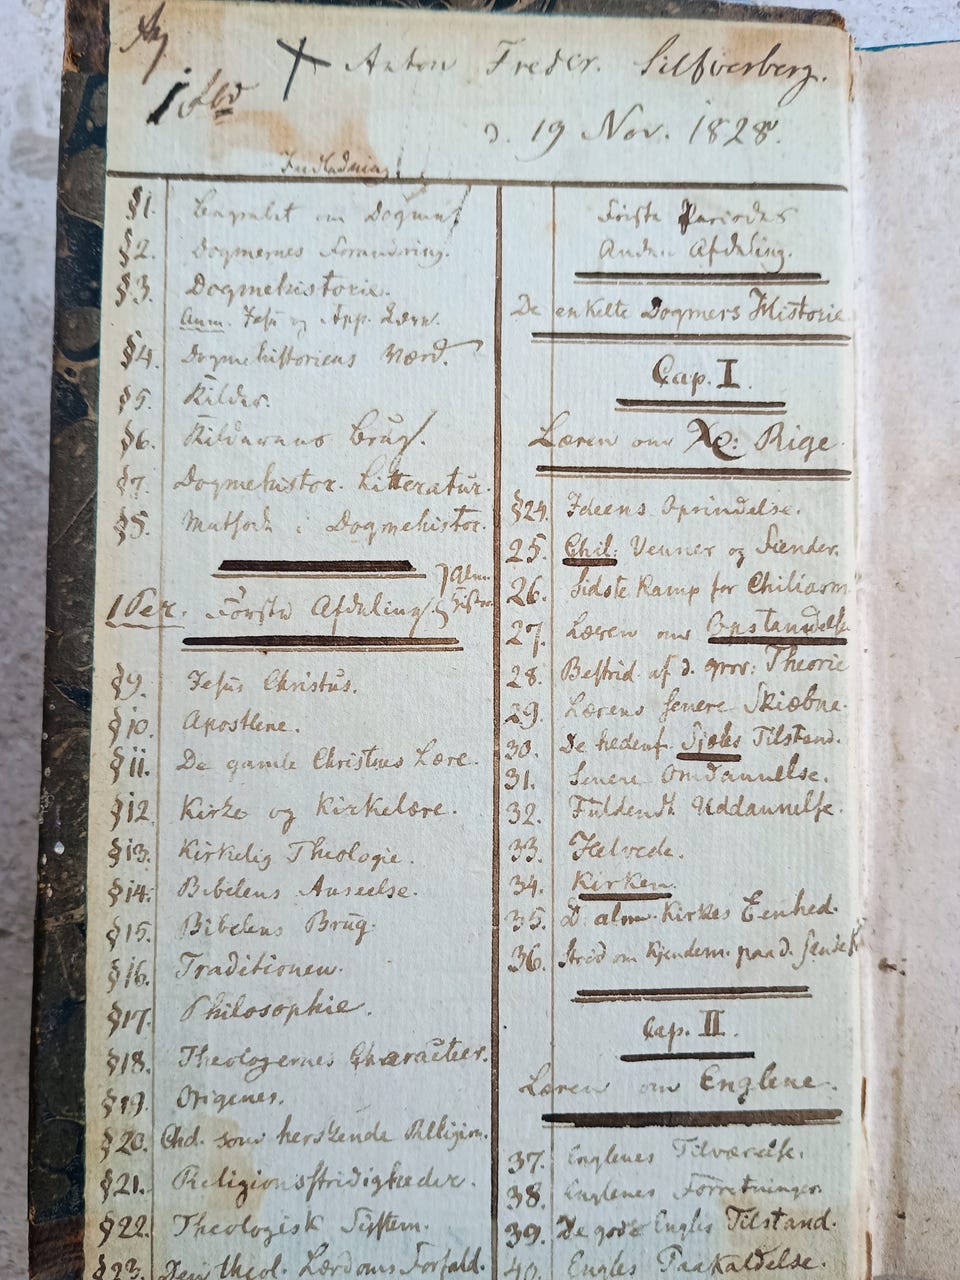 Anton Freder. Silfverberg.
d. 19 Nov. 1828.
Indledning
§1. Begrebet om Dogme
§2. Dogmernes Forandring.
§3. Dogmehistorie.
Anm. Jesu og App. Lære.
§4. Dogmehistoriens Værd.
§5. Kilder.
§6. Kildernes Brug.
§7. Dogmehistor. Litteratur.
§8. Methode i Dogmehistor.
1 Per. Første Afdeling
Alm. Histor.
§9. Jesus Christus.
§10. Apostlene.
§11. De gamle Christnes Lære.
§12 Kirke og Kirkelære.
§13. Kirkelig Theologie.
§14. Bibelens Anseelse.
§15. Bibelens Brug.
§16. Traditionen.
§17. Philosophie.
§18. Theologernes Characteer.
§19. Origenes.
§20. Chd. som herskende Religion.
§21. Religionsstridigheder.
§22. Theologisk System.
§23. Den theol. Lærdoms Forfald.
Første Periodes
Anden Afdeling.
De enkelte Dogmers Historie
Cap. I.
Læren om Xe: Rige.
§24. Ideens Oprindelse.
25. Chil: Venner og Fiender.
26. Sidste Kamp for Chiliasm
27. Læren om Opstandelse
28. Bestrid. af d. grov: Theorie
29. Lærens senere Skiæbne.
30. De hedenf. Sjæles Tilstand.
31. Senere Omdannelse.
32. Fuldendt Uddannelse.
33. Helvede.
34. Kirken.
35. D. alm. Kirkes Eenhed.
36. Strid om Kjendem. paa d.
Cap. II.
Læren om Englene.
37. Englenes Tilværelse.
38. Englenes Forretninger.
39. De gode Engles Tilstand.
40. Engles Paakaldelse.